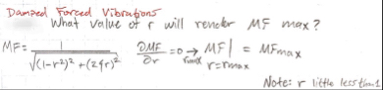 Damped Forced Vibrations
What value of r will render MF max?
MF = 1 / √((1-r²)² + (2ζr)²)   ∂MF/∂r = 0 → rmax   MF|r=rmax = MFmax
Note: r little less than 1